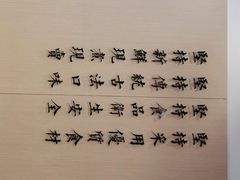 堅持新鮮現煮現賣
堅持傳統古法口味
堅持食品衛生安全
堅持采用優質食材